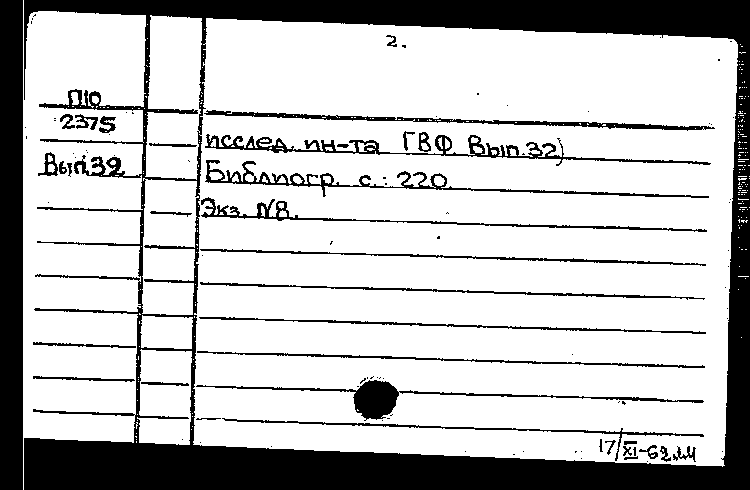 2.
П10
2375
исслед. ин-та ГВФ Вып. 32)
Вып. 32
Библиогр. с.: 220.
Экз. №8.
17/XI-62 мм